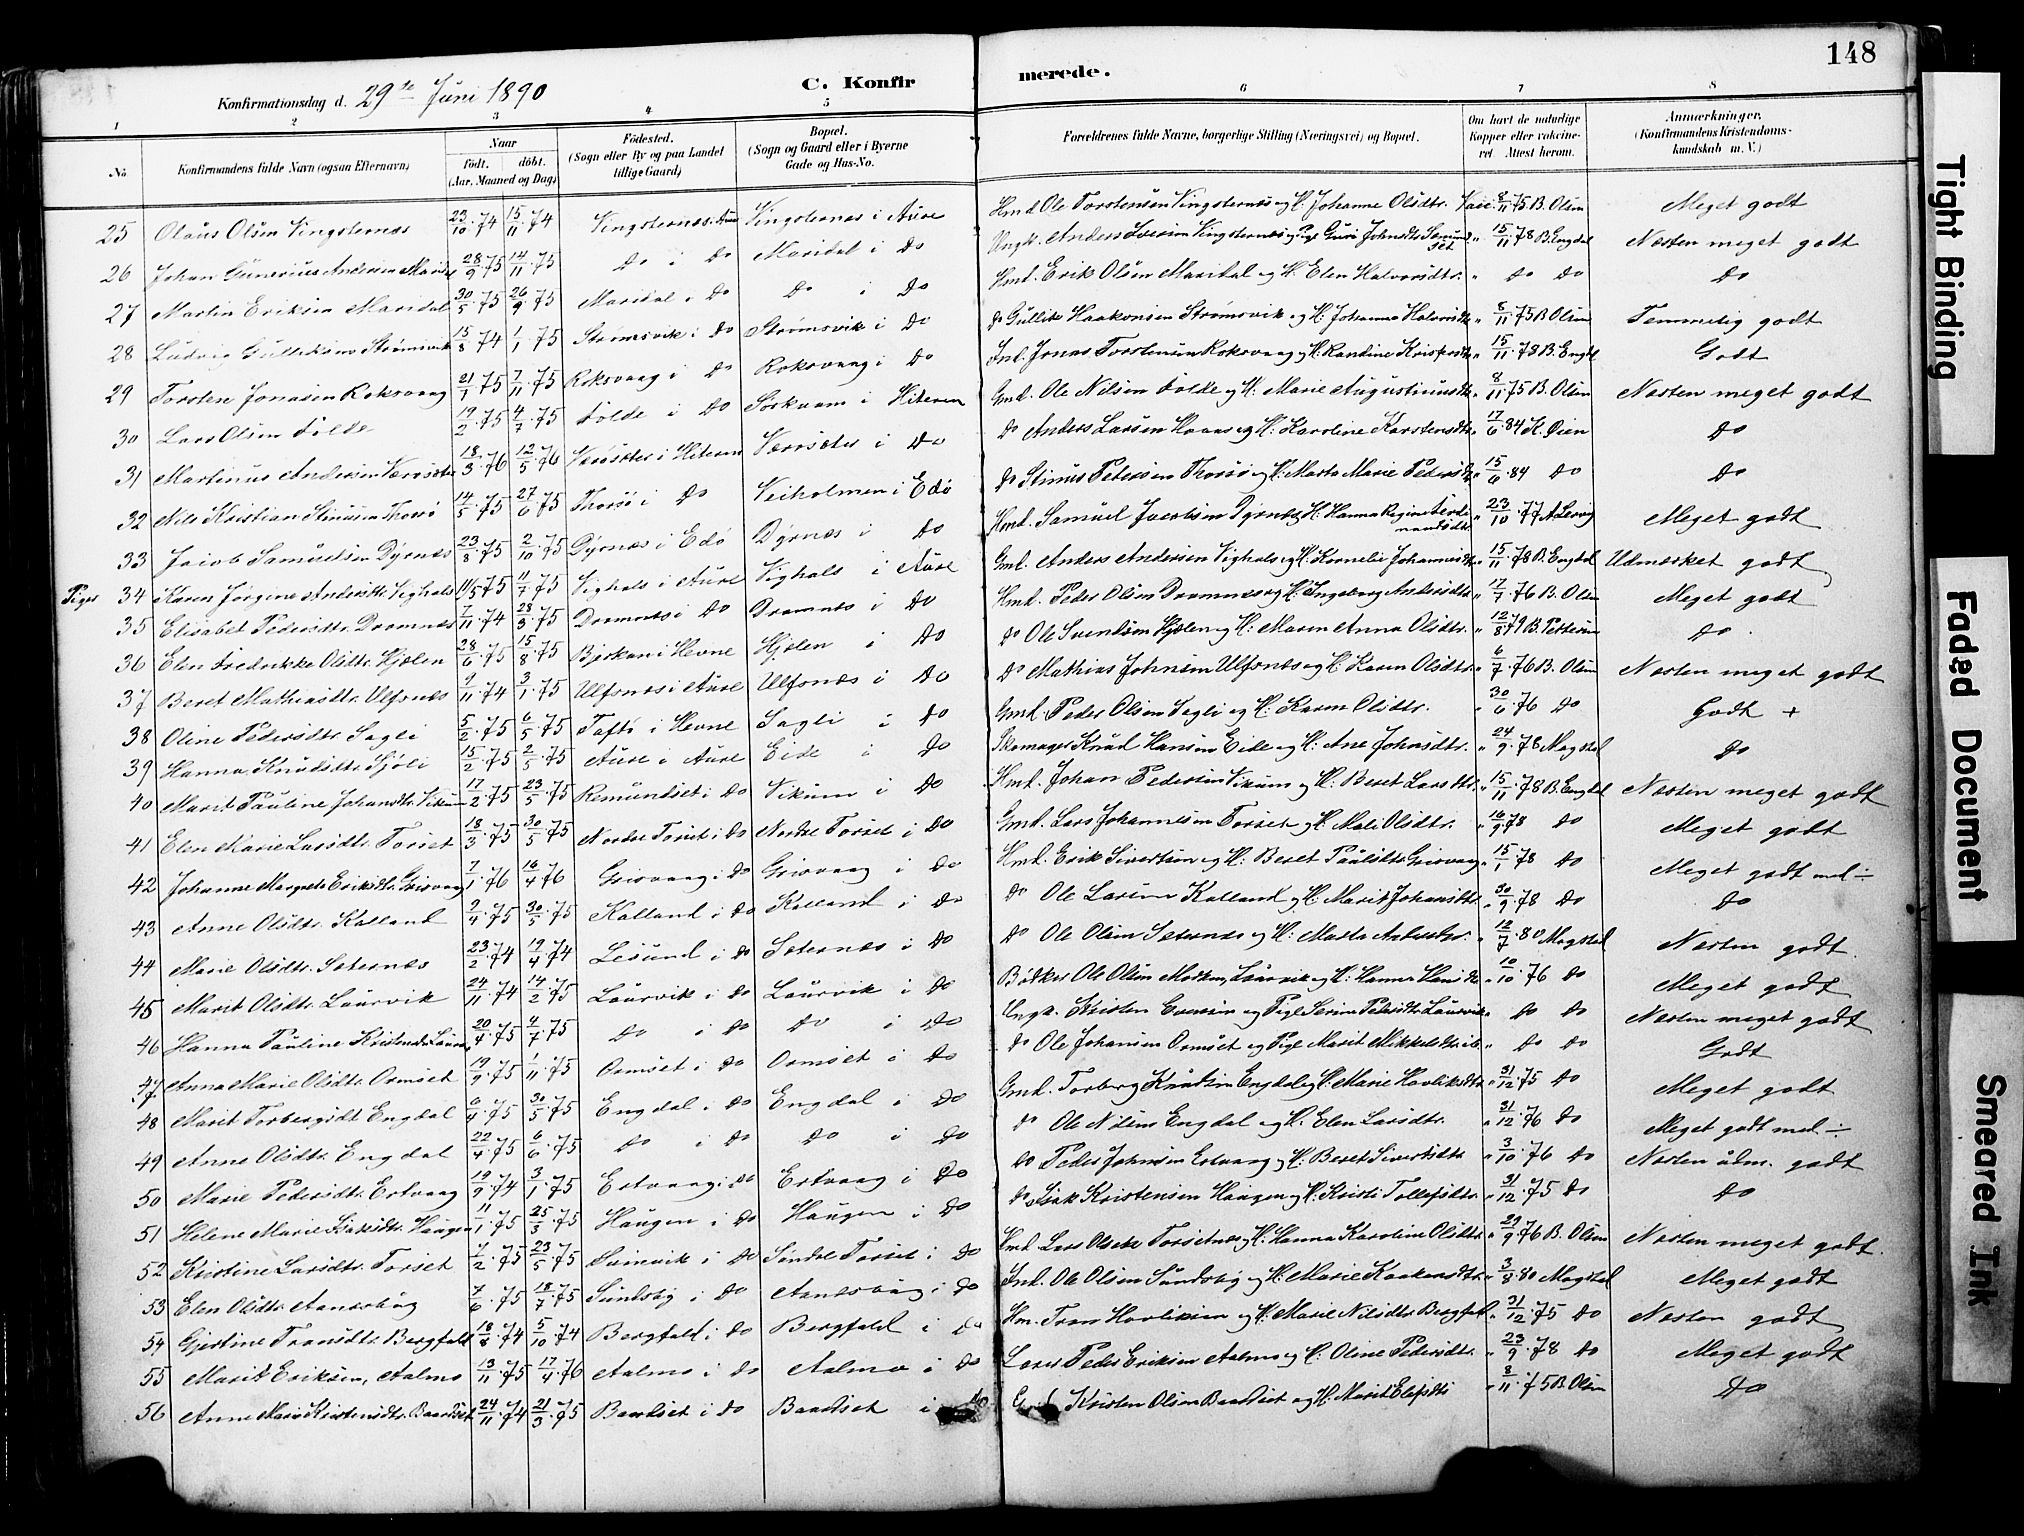 148
Konfirmationsdag d. 29de Juni 1890 C. Konfirmerede.
1 2 3 4 5 6 7 8
No Konfirmandens fulde Navn (ogsaa Efternavn) Naar født. døbt. (Aar, Maaned og Dag) Fødested. (Sogn eller By og paa Landet tillige Gaard) Bopæl. (Sogn og Gaard eller i Byerne Gade og Hus-No. Forældrenes fulde Navne, borgerlige Stilling (Næringsvei) og Bopæl. Om havt de naturlige Kopper eller vakcineret. Attest herom. Anmærkninger. (Konfirmandens Kristendomskundskab m. V.)
25 Olaus Olsen Vingsternæs 23/10 74 15/11 74 Vingsternæs i Aure Vingsternæs i Aure Hmd Ole Torstensen Vingsternæs og H. Johanne Olsdtr. Vacc. 8/11 75 B. Olsen Meget godt
26 Johan Gunerius Andersen Maridal 28/9 75 14/11 75 do i do Maridal i do Ungk. Anders Iversen Vingsternæs og Pige Guri Johnsdtr. 15/11 78 B. Engdal Næsten meget godt
27 Martin Eriksen Maridal 30/5 75 26/9 75 Maridal i do do i do Hmd. Erik Olsen Maridal og H. Elen Halvorsdtr. " do do do
28 Ludvig Gulliksen Strømsvik 15/8 74 1/1 75 Strømsvik i do Strømsvik i do do Gullik Haakonsen Strømsvik og H. Johanna Halvorsdtr. " 8/11 75 B. Olsen Temmelig godt
29 Torsten Jonasen Roksvaag 21/1 75 7/11 75 Roksvaag i do Roksvaag i do Ind. Jonas Torstensen Roksvaag og H. Randine 15/11 78 B. Engdal Godt
30 Lars Olsen Folde 19/2 75 4/7 75 Folde i do i Hiteren Gmd. Ole Nilsen Folde og H. Marie Augustinusdtr. 8/11 75 B. Olsen Næsten meget godt
31 Martinus Andersen 18/3 76 12/5 76 i Hiteren i do do Anders Larsen og H. Karoline Karstensdtr. 17/6 84 K. Øien do
32 Nils Kristian Stinusen Thorsø 14/5 75 27/6 75 Thorsø i do Veiholmen i Edø do Stinus Petersen Thorsø og H. Marta Marie Pedersdtr. 15/6 84 do do
33 Jacob Samuelsen Dyrnæs 23/8 75 2/10 75 Dyrnæs i Edø Dyrnæs i do Hmd. Samuel Jacobsen Dyrnæs og H. Hanna Regine 23/10 77 Meget godt
Piger 34 Karen Jørgine Andersdtr. Vighals 11/5 75 11/7 75 Vighals i Aure Vighals i Aure Gmd. Anders Andersen Vighals og H. Kornelia Johannesdtr. 15/11 78 B. Engdal Udmærket godt
35 Elisabet Pedersdtr. Dromnæs 7/11 74 28/3 75 Dromnæs i do Dromnæs i do Hmd. Peder Olsen Dromnæs og H. Ingeborg Andersdtr. " 17/7 76 B. Olsen Meget godt
36 Elen Fredrikke Olsdtr. Hjelen 28/6 75 15/8 75 Bjerkan i Hevne Hjelen i do do Ole Svendsen Hjelen og H. Maren Anna Olsdtr. " 12/8 79 B. Pettersen do.
37 Beret Mathiasdtr. Ulfsnæs 9/11 74 3/1 75 Ulfsnæs i Aure Ulfsnæs i do do Mathias Johnsen Ulfsnæs og H. Karen Olsdtr. 6/7 76 B. Olsen Næsten meget godt
38 Oline Pedersdtr. Sagli 5/2 75 6/5 75 Taftø i Hevne Sagli i do Gmd. Peder Olsen Sagli og H. Karen Olsdtr. " 30/6 76 do Godt +
39 Hanna Knudsdtr. 15/2 75 2/5 75 Aure i Aure Eide i do Skomager Knud Hansen Eide og H. Ane Johnsdtr. " 24/9 78 Magstad do
40 Marit Pauline Johansdtr. Vikum 17/2 75 23/5 75 Remundset i do Vikum i do Hmd. Johan Pedersen Vikum og H. Beret Larsdtr. " 15/11 78 B. Engdal Næsten meget godt
41 Elen Marie Larsdtr. Torset 18/3 75 30/5 75 Nordre Torset i do Nordre Torset i do Gmd. Lars Johannesen Torset og H. Mali Olsdtr. " 16/9 78 do Meget godt
42 Johanne Margrete Eriksdtr. Grisvaag 7/1 76 16/4 76 Grisvaag i do Grisvaag i do Hmd. Erik Sivertsen og H. Beret Paulsdtr. Grisvaag " 15/1 78 do Meget godt med ÷
43 Anne Olsdtr. Kalland 2/4 75 30/5 75 Kalland i do Kalland i do do Ole Larsen Kalland og H. Marit Johansdtr. " 30/9 78 do do
44 Marie Olsdtr. Seternæs 23/2 74 19/4 74 Lesund i do Seternæs i do do Ole Olsen Seternæs og H. Marta " 12/7 80 Magstad Næsten godt.
45 Marit Olsdtr. Laurvik 24/11 74 14/2 75 Laurvik i do Laurvik i do Bødker Ole Olsen Laurvik og H. Hanna Hansdtr. " 10/10 76 do Meget godt
46 Hanna Pauline Kristensdtr. Laurvik 20/4 75 4/7 75 do i do do i do Ungk. Kristen Evensen og Pige Serine Pedersdtr. Laurvik " do do Næsten meget godt
47 Anna Marie Olsdtr. Ormset 19/9 75 1/11 75 Ormset i do Ormset i do do Ole Johansen Ormset og Pige Marit Mikkelsdtr. " do do Godt
48 Marit Torbergsdt Engdal 6/4 75 30/5 75 Engdal i do Engdal i do Gmd. Torberg Knutsen Engdal og H. Marie Havliksdtr. " 31/12 75 do Meget godt
49 Anne Olsdtr. Engdal 22/4 75 6/6 75 do i do do i do do Ole Nilsen Engdal og H. Elen Larsdtr. " 31/12 76 do Meget godt med ÷
50 Marie Pedersdtr. Ertvaag 19/9 74 3/1 75 Ertvaag i do Ertvaag i do do Peder Johnsen Ertvaag og H. Beret Sivertsdtr. " 3/10 76 do Næsten udm. godt
51 Helene Marie Isaksdtr. Haugen 11/1 75 25/3 75 Haugen i do Haugen i do do Isak Kristensen Haugen og H. Kristi Tollefsdtr. " 31/12 75 do do
52 Kristine Larsdtr. Torset 7/2 75 23/5 75 Svinvik i do Søndre Torset i do Hmd. Lars Olsen Torsetnæs og H. Hanna Karoline Olsdtr. " 29/9 76 B. Olsen Næsten meget godt.
53 Elen Olsdtr. 7/6 75 18/7 75 Sundsby i do i do Ind. Ole Olsen Sundsby og H. Marie Haakensdtr. " 3/8 80 Magstad Meget godt
54 Gjertine Tronsdtr. Bergfald 18/8 74 5/10 74 Bergfald i do Bergfald i do Hm. Tron Havliksen og H. Marie Nilsdtr. Bergfald " 31/12 75 do Næsten godt
55 Marit Eriksen, Aalmo 13/11 75 17/4 76 Aalmo i do Aalmo i do Peder Eriksen Aalmo og H. Oline Pedersdtr. " 23/9 78 do Meget godt
56 Anne Marie Kristensdtr. Baardset 24/11 74 21/3 75 Baardset i do Baardset i do Kristen Olsen Baardset og H. Marit " 8/11 75 B. Olsen do
Tight Binding
Faded Document
Smeared Ink